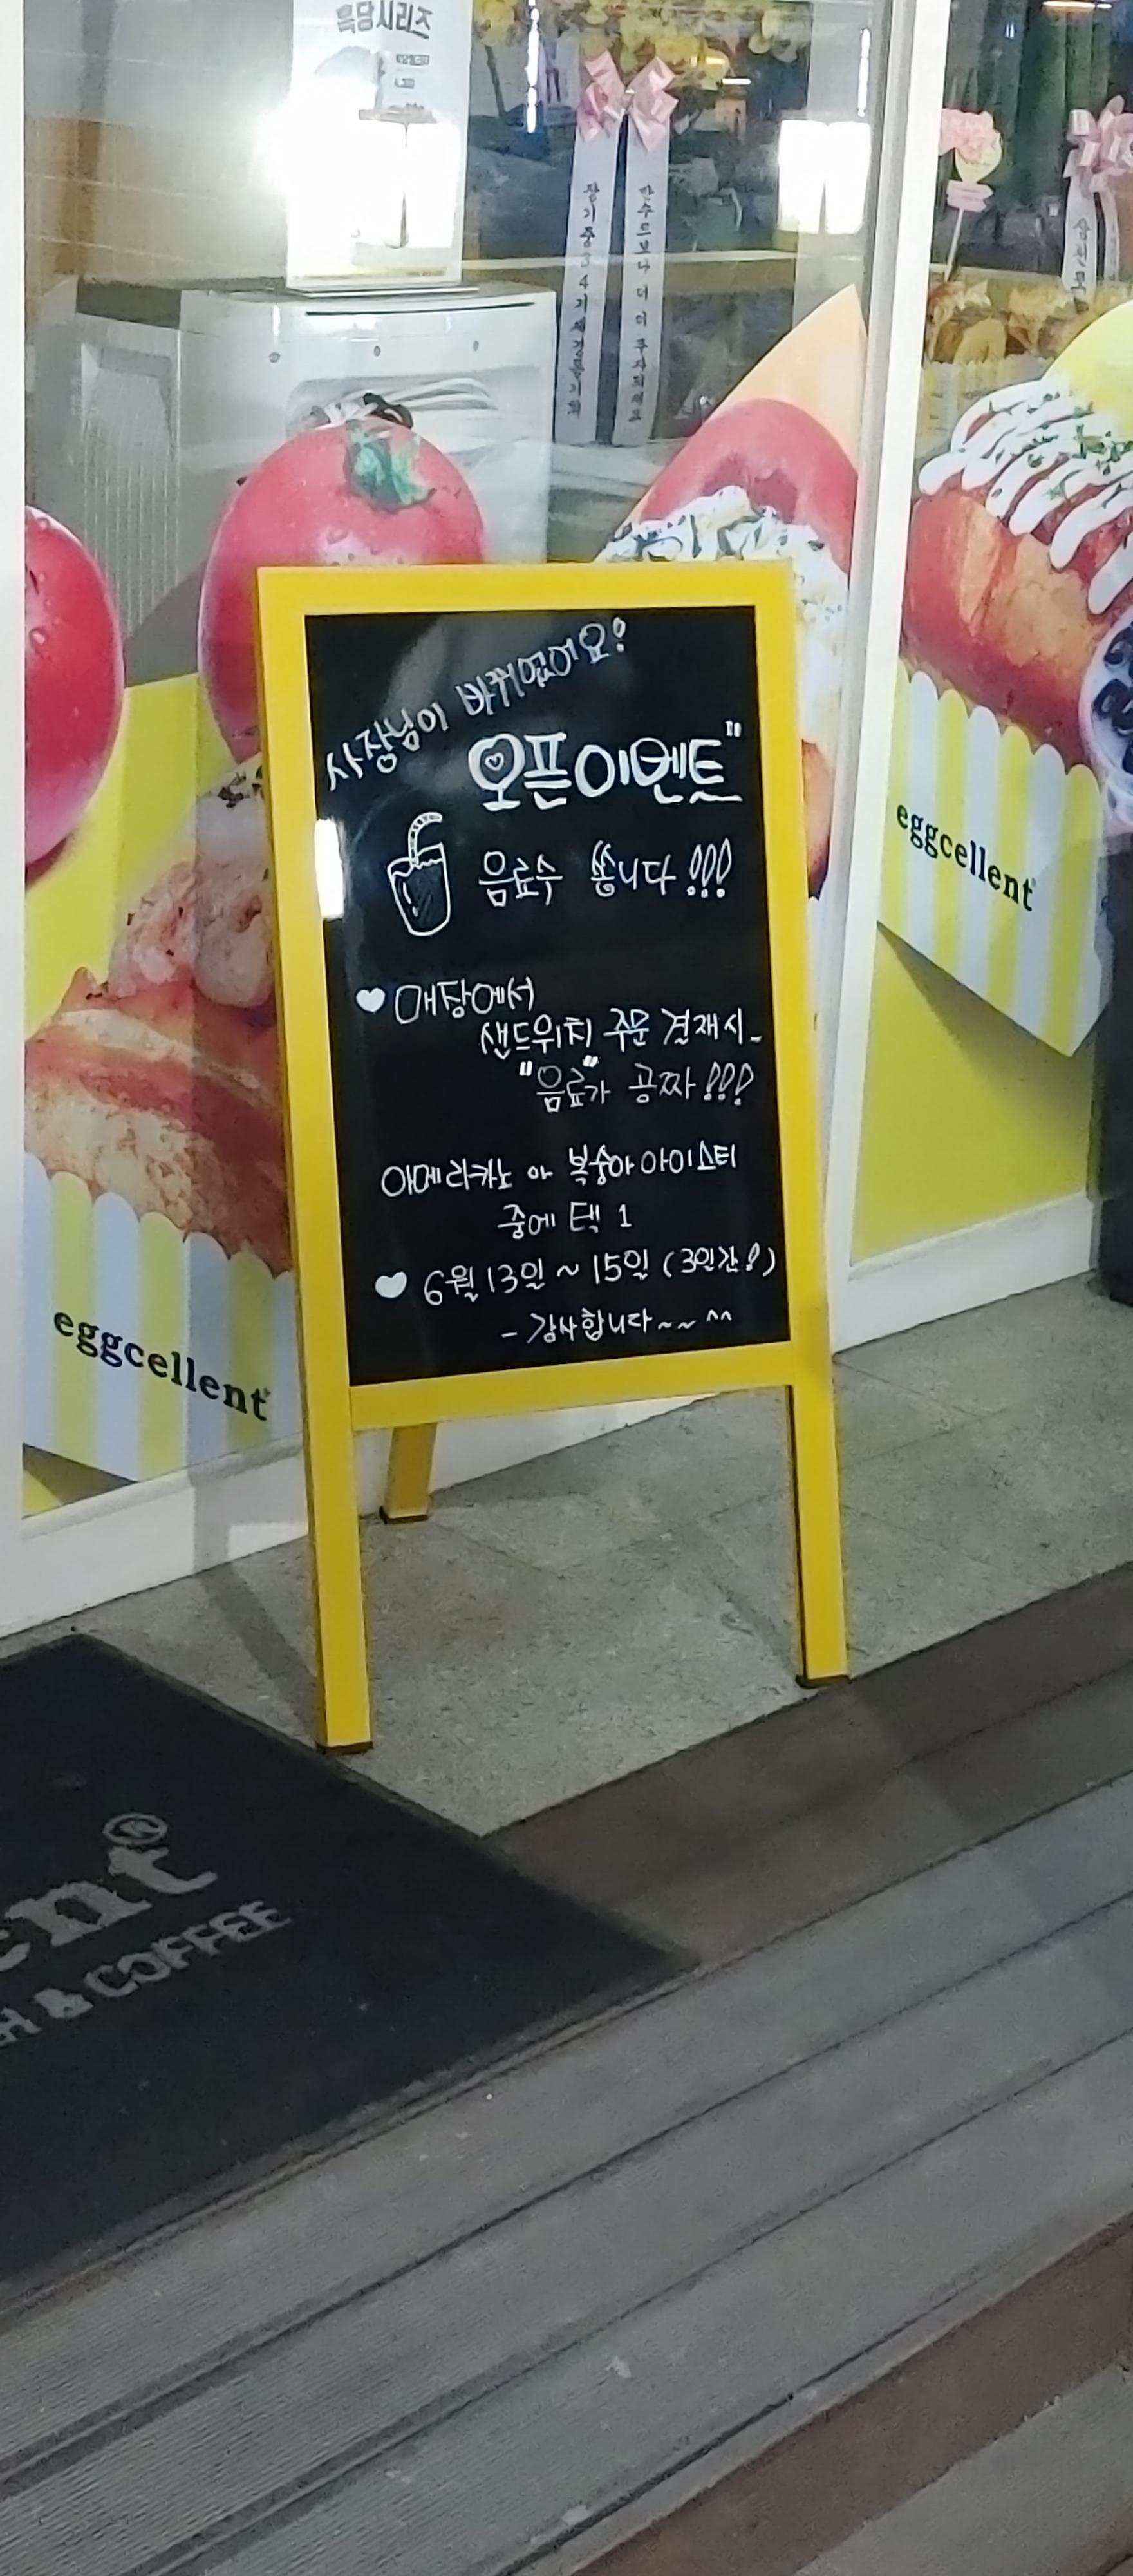 흑당시리즈
사장님이 바뀌었어요!
오픈이벤트"
음료수 쏩니다!!!
매장에서
샌드위치 주문 결재시_
"음료"가 공짜!!!
아메리카노 or 복숭아 아이스티
중에 택 1
6월 13일 ~ 15일 (3일간!)
- 감사합니다~~ ^^
eggcellent
eggcellent
ent®
H & COFFEE